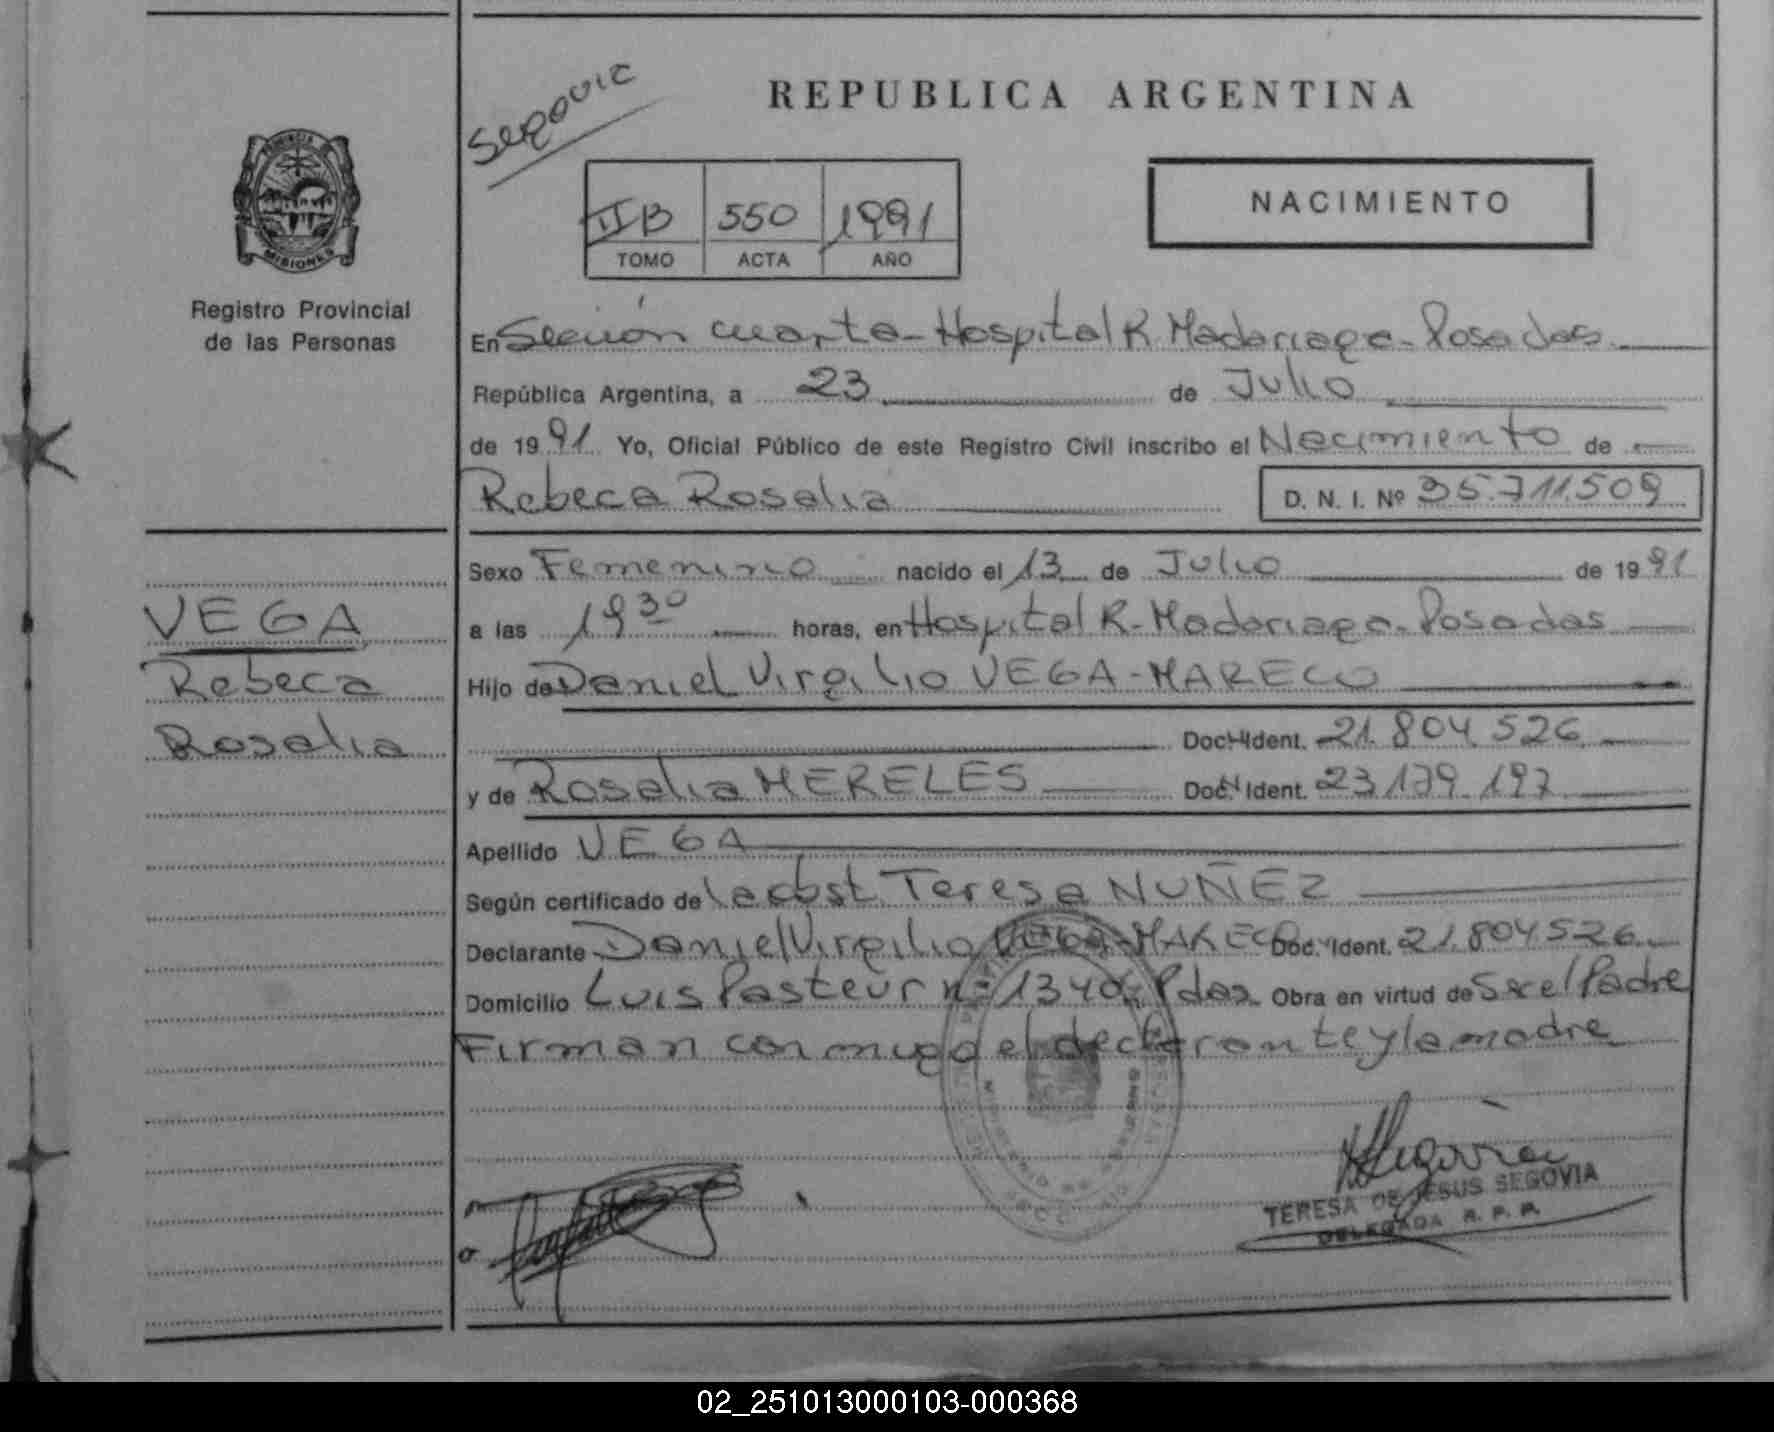 Segovia
REPUBLICA ARGENTINA
IIB 550 1991
TOMO ACTA AÑO
NACIMIENTO
PROVINCIA
MISIONES
Registro Provincial
de las Personas
En Sección cuarta - Hospital R. Madariaga - Posadas
República Argentina, a 23 de Julio
de 1991 Yo, Oficial Público de este Registro Civil inscribo el Nacimiento de
Rebeca Rosalia D. N. I. Nº 35.711.509
VEGA
Rebeca
Rosalia
Sexo Femenino nacido el 13 de Julio de 1991
a las 19 30 horas, en Hospital R. Madariaga - Posadas
Hijo de Daniel Virgilio VEGA - MARECO
Doc. Ident. 21.804.526
y de Rosalia MERELES Doc. Ident. 23.179.197
Apellido VEGA
Según certificado de la obst. Teresa NUÑEZ
Declarante Daniel Virgilio VEGA - MARECO Doc. Ident. 21.804.526
Domicilio Luis Pasteur nº 1340, Pdas. Obra en virtud de Ser el Padre
Firman conmigo el declarante y la madre
Segovia
TERESA DE JESUS SEGOVIA
DELEGADA R. P. P.
02_251013000103-000368